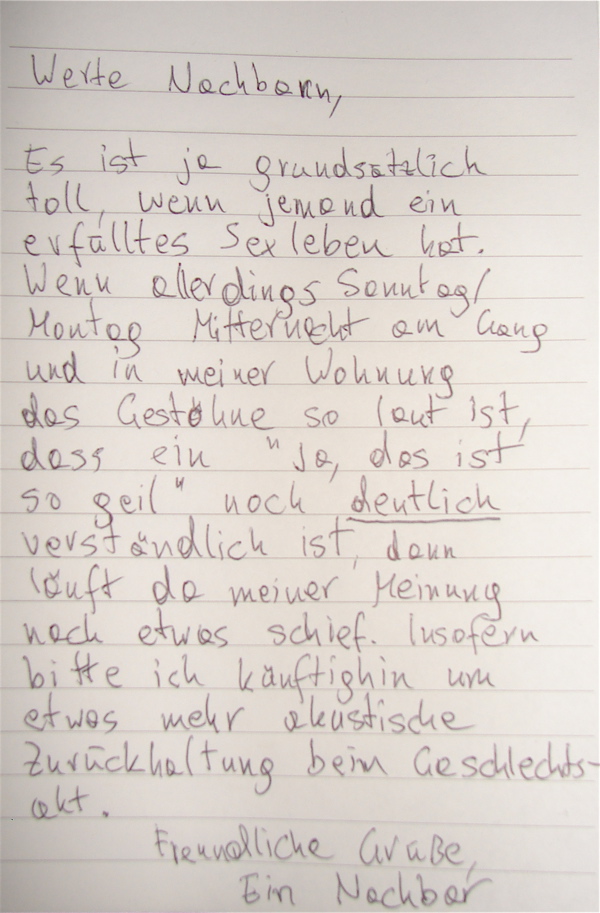 Werte Nachbarn,
Es ist ja grundsätzlich
toll, wenn jemand ein
erfülltes Sexleben hat.
Wenn allerdings Sonntag/
Montag Mitternacht am Gang
und in meiner Wohnung
das Gestöhne so laut ist,
dass ein "Ja, das ist
so geil" noch deutlich
verständlich ist, dann
läuft da meiner Meinung
nach etwas schief. Insofern
bitte ich künftighin um
etwas mehr akustische
Zurückhaltung beim Geschlechts-
akt.
Freundliche Grüße,
Ein Nachbar